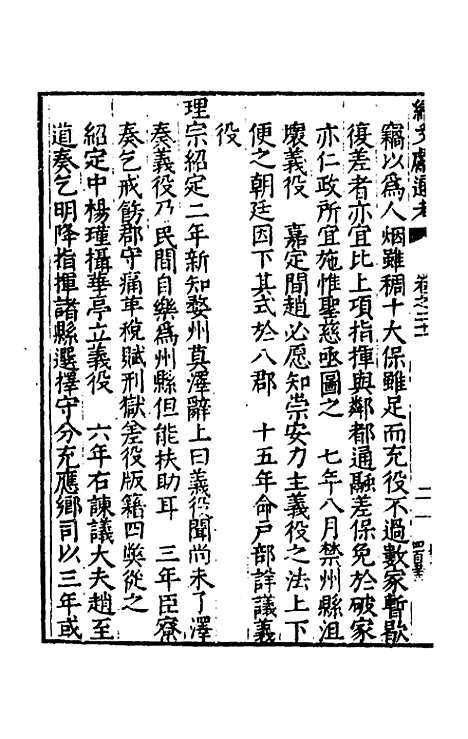 續文獻通考 卷之二十
竊以爲人烟雖稠十大保雖足而充役不過數家暫歇
復差者亦宜比上項指揮與鄰都通融差保免於破家
亦仁政所宜施惟聖慈亟圖之 七年八月禁州縣沮
壞義役 嘉定間趙必愿知崇安力主義役之法上下
便之朝廷因下其式於八郡 十五年命戶部詳議義
役
理宗紹定二年新知婺州莫澤辭上曰義役聞尚未了澤
奏義役乃民間自樂爲州縣但能扶助耳 三年臣寮
奏乞戒飭郡守痛革稅賦刑獄差役版籍四獘從之
紹定中楊瑾攝華亭立義役 六年右諫議大夫趙至
道奏乞明降指揮諸縣選擇守分充應鄉司以三年或